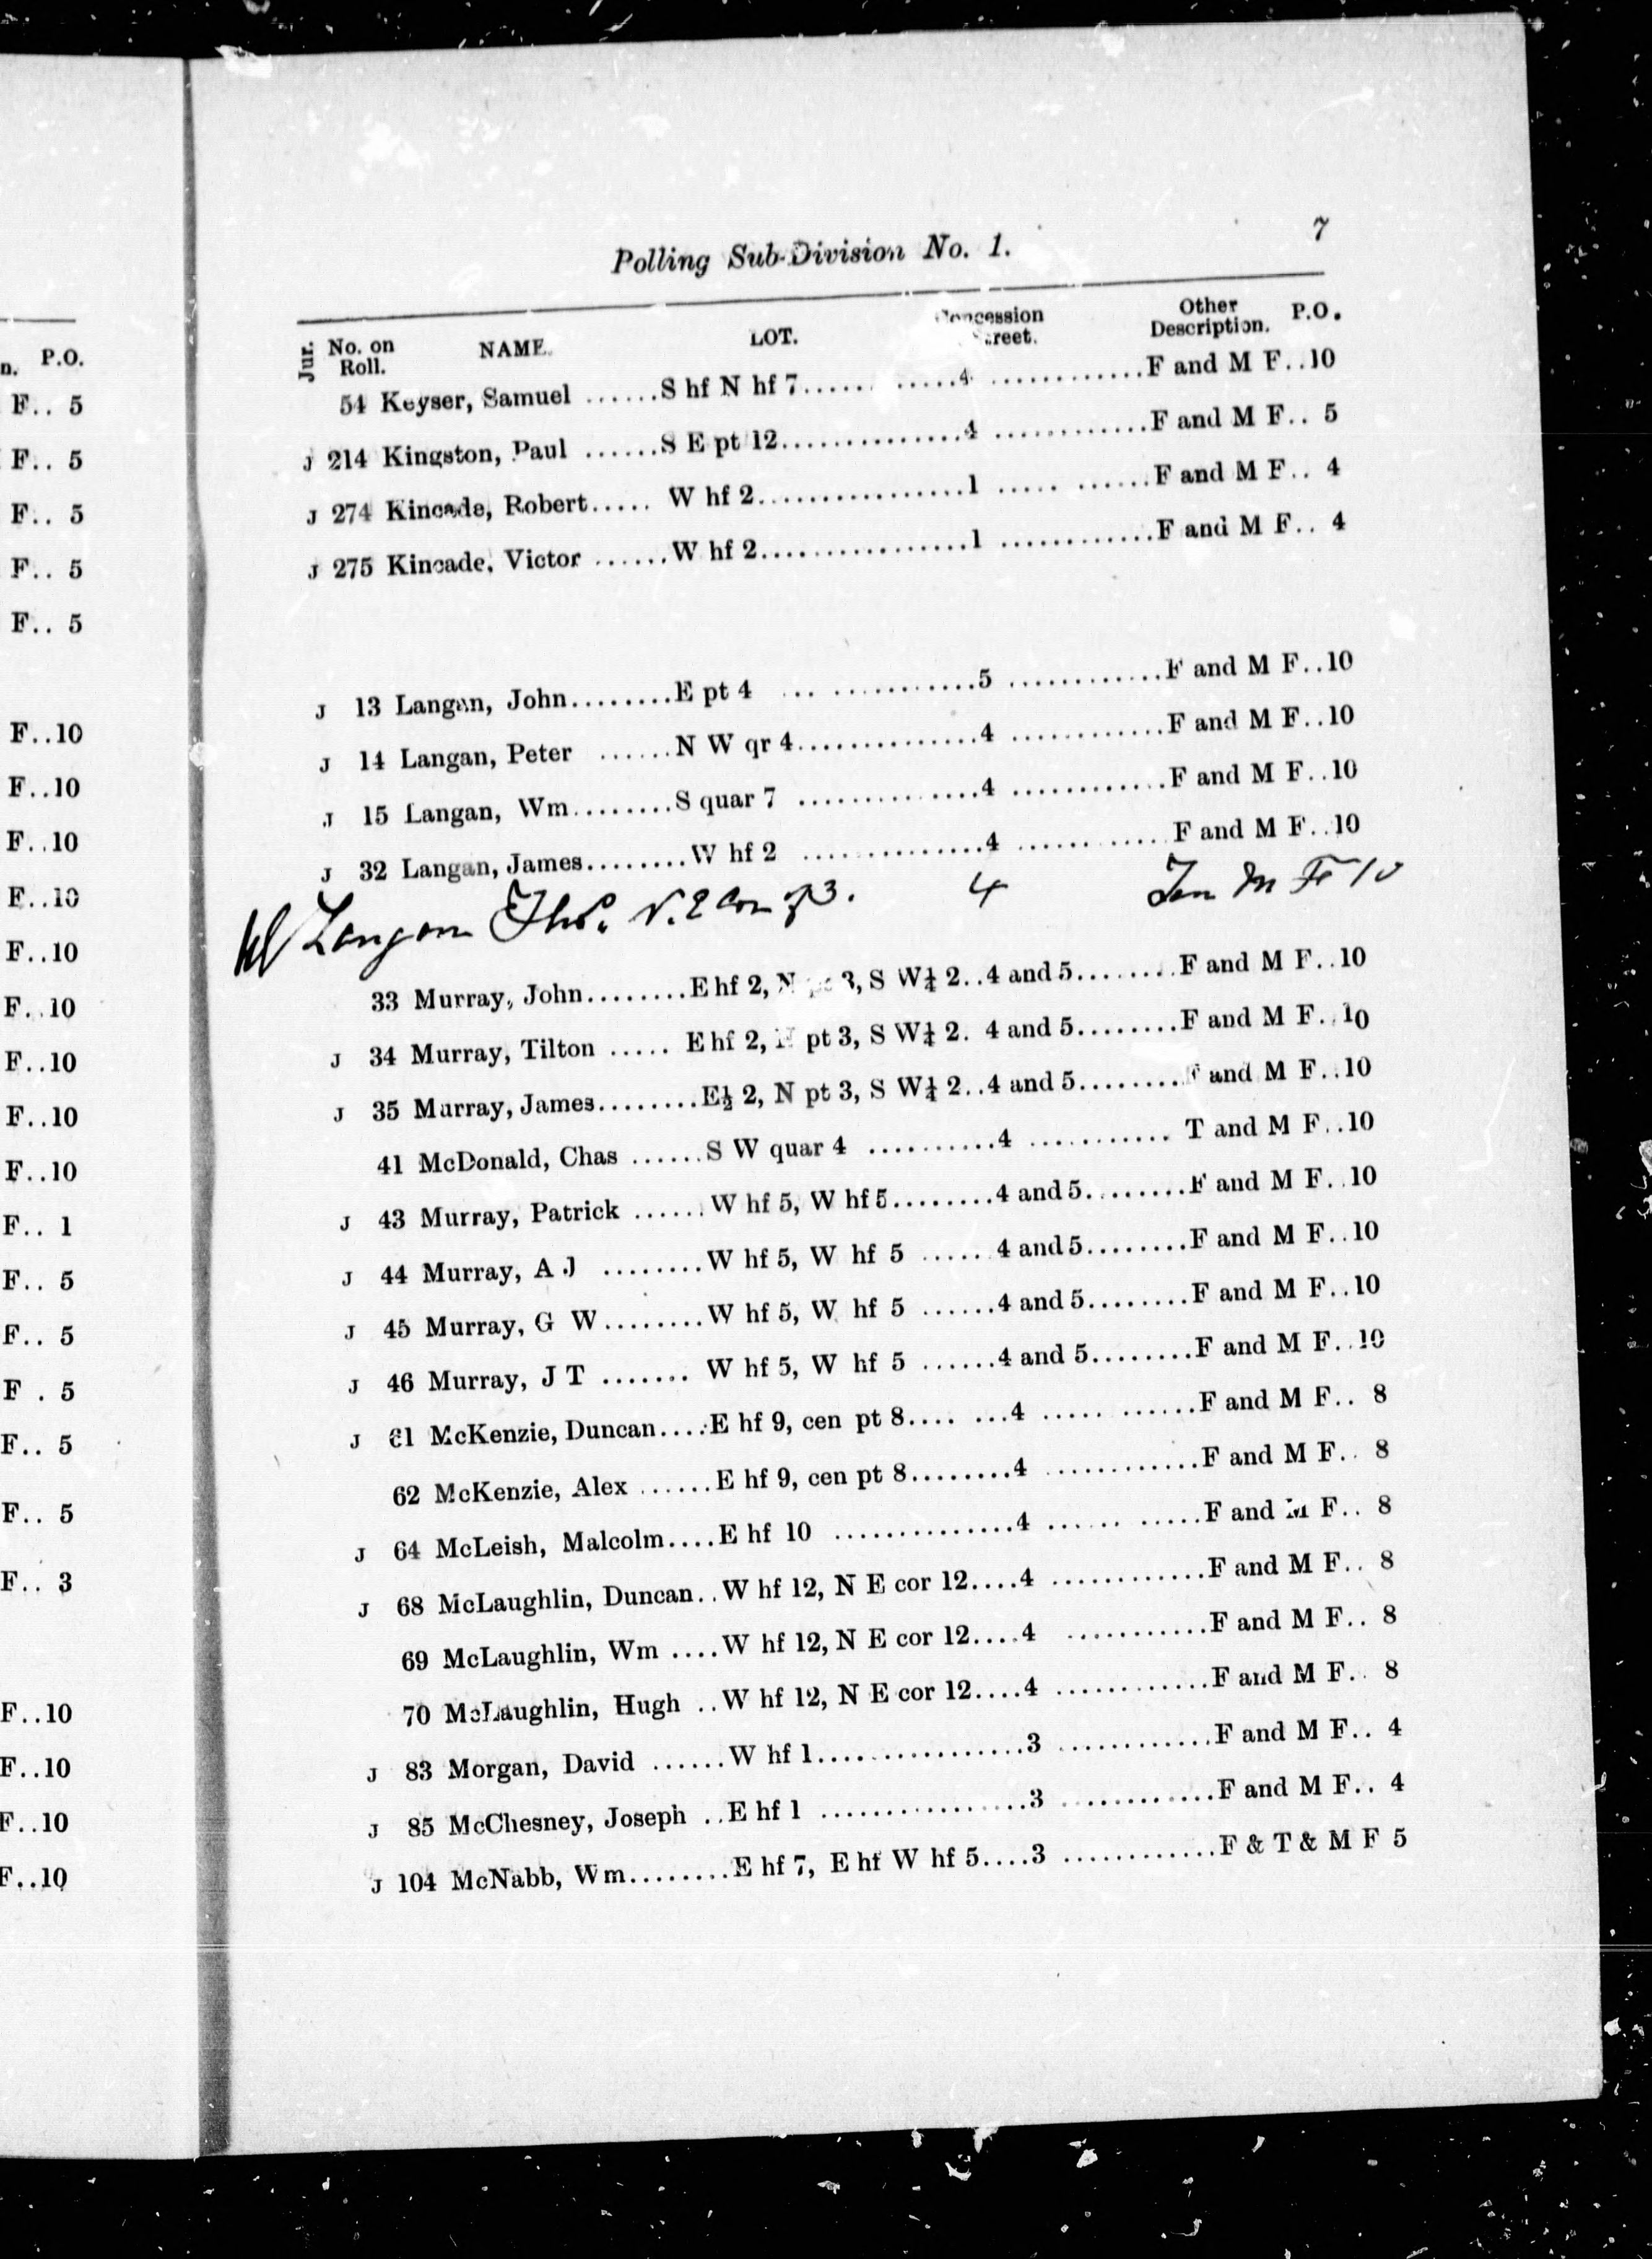 n. P.O.
F.. 5
F.. 5
F.. 5
F.. 5
F.. 5
F..10
F..10
F..10
F..10
F..10
F..10
F..10
F..10
F..10
F.. 1
F.. 5
F.. 5
F . 5
F.. 5
F.. 5
F.. 3
F..10
F..10
F..10
F..10
Polling Sub-Division No. 1. 7
Jur. No. on Roll. NAME. LOT. Concession Street. Other Description. P.O.
54 Keyser, Samuel ......S hf N hf 7...... .....4 ............F and M F..10
J 214 Kingston, Paul ......S E pt 12..............4 ............F and M F.. 5
J 274 Kincade, Robert..... W hf 2................1 ..... ......F and M F.. 4
J 275 Kincade, Victor ......W hf 2................1 ............F and M F.. 4
J 13 Langan, John........E pt 4 ... ...........5 ............F and M F..10
J 14 Langan, Peter ......N W qr 4..............4 ............F and M F..10
J 15 Langan, Wm........S quar 7 ..............4 ............F and M F..10
J 32 Langan, James........W hf 2 ..............4 ............F and M F..10
Langan Thos. 4 10
33 Murray, John........E hf 2, N pt 3, S W¼ 2..4 and 5........F and M F..10
J 34 Murray, Tilton ..... E hf 2, N pt 3, S W¼ 2. 4 and 5........F and M F..10
J 35 Murray, James........E½ 2, N pt 3, S W¼ 2..4 and 5........F and M F..10
41 McDonald, Chas ......S W quar 4 ..........4 ........... T and M F..10
J 43 Murray, Patrick ......W hf 5, W hf 5........4 and 5........F and M F..10
J 44 Murray, A J ........W hf 5, W hf 5 ......4 and 5........F and M F..10
J 45 Murray, G W........W hf 5, W hf 5 ......4 and 5........F and M F..10
J 46 Murray, J T ....... W hf 5, W hf 5 ......4 and 5........F and M F..10
J 61 McKenzie, Duncan....E hf 9, cen pt 8.... ...4 ..... ......F and M F.. 8
62 McKenzie, Alex ......E hf 9, cen pt 8........4 ............F and M F.. 8
J 64 McLeish, Malcolm....E hf 10 ..............4 ...... .....F and M F.. 8
J 68 McLaughlin, Duncan..W hf 12, N E cor 12....4 ............F and M F.. 8
69 McLaughlin, Wm ....W hf 12, N E cor 12....4 ...........F and M F.. 8
70 McLaughlin, Hugh ..W hf 12, N E cor 12....4 ............F and M F.. 8
J 83 Morgan, David ......W hf 1................3 ............F and M F.. 4
J 85 McChesney, Joseph ..E hf 1 ................3 ............F and M F.. 4
J 104 McNabb, Wm........E hf 7, E hf W hf 5....3 ............F & T & M F 5